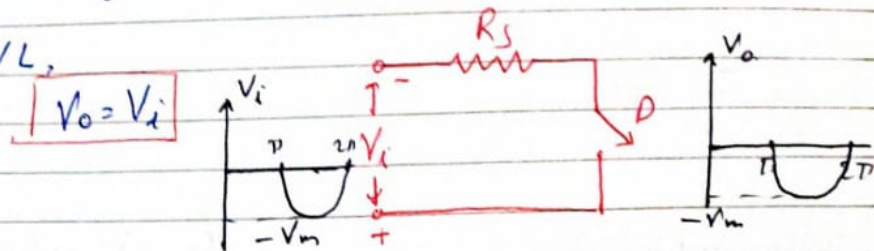 VL,
V₀ = Vᵢ
Vᵢ
π
2π
-Vm
Rs
-
Vᵢ
+
D
V₀
π
2π
-Vm